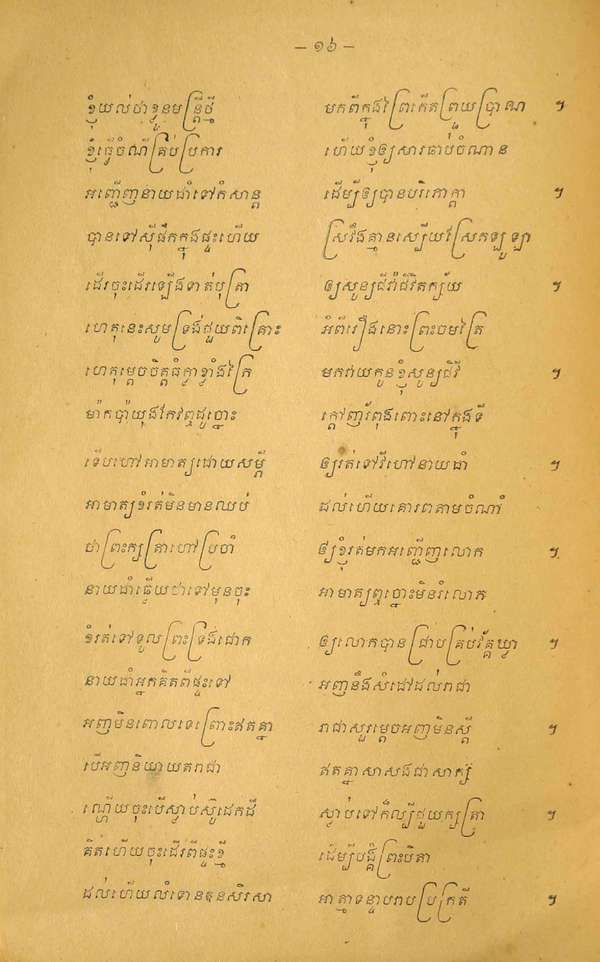 – ១៦ –
ខ្ញុំយល់ថាខ្លួនមន្ត្រីថ្មី មកពីក្នុងព្រៃកើតព្រួយប្រាណ ។
ខ្ញុំធ្វើចំណីគ្រប់ប្រការ ហើយខ្ញុំឲ្យសារធាប់ចំណាន
អញ្ជើញនាយជាំទៅកំសាន្ត ដើម្បីឲ្យបានបរិភោក្តា ។
បានទៅស៊ីផឹកក្នុងផ្ទះហើយ ស្រវឹងគ្មានស្បើយស្រែកឡូឡា
ដើរចុះដើរឡើងទាត់បុត្រា ឲ្យសូន្យជីវ៉ាជីវិតក្ស័យ ។
ហេតុនេះសូមទ្រង់ជួយពិគ្រោះ អំពីរឿងនោះព្រះចមត្រៃ
ហេតុម្តេចចិត្តធំក្លាខ្លាំងក្រៃ មកវាយកូនខ្ញុំសូន្យជីវី ។
ម៉ាកប៉ាយ៉ុងកែវឮដូច្នោះ ក្តៅពុងពោះនៅក្នុងទី
ទើបហៅអាមាត្យដោយសម្តី ឲ្យរត់ទៅវីហៅនាយជាំ ។
អាមាត្យខំរត់មិនមានឈប់ ដល់ហើយគោរពតាមចំណាំ
ថាព្រះក្សត្រាហៅប្រចាំ ឲ្យខ្ញុំរត់មកអញ្ជើញលោក ។
នាយជាំឆ្លើយថាទៅមុនចុះ អាមាត្យឮច្នោះមិនរំលោភ
ខំរត់ទៅទូលព្រះទ្រង់ជោគ ឲ្យលោកបានជ្រាបគ្រប់វគ្គឃ្លា ។
នាយជាំអ្នកគិតពីផ្ទះទៅ អញនឹងសំដៅដល់រាជា
អញមិនពោលទេព្រោះឥតគ្នា រាជាសួរម្តេចអញមិនស្តី ។
បើអញនិយាយតរាជា ឥតគ្នាសាសងជាសាក្សី
ណ្ហើយចុះបើស្លាប់ស៊ូដេកដី ស្លាប់ទៅក៏ល្បីជួយក្សត្រា ។
គិតហើយចុះដើរពីផ្ទះខ្មី ដើម្បីបង្គំព្រះបិតា
ដល់ហើយលំទោនឱនសិរសា អាត្មាទន្ទាបរាបប្រក្រតី ។